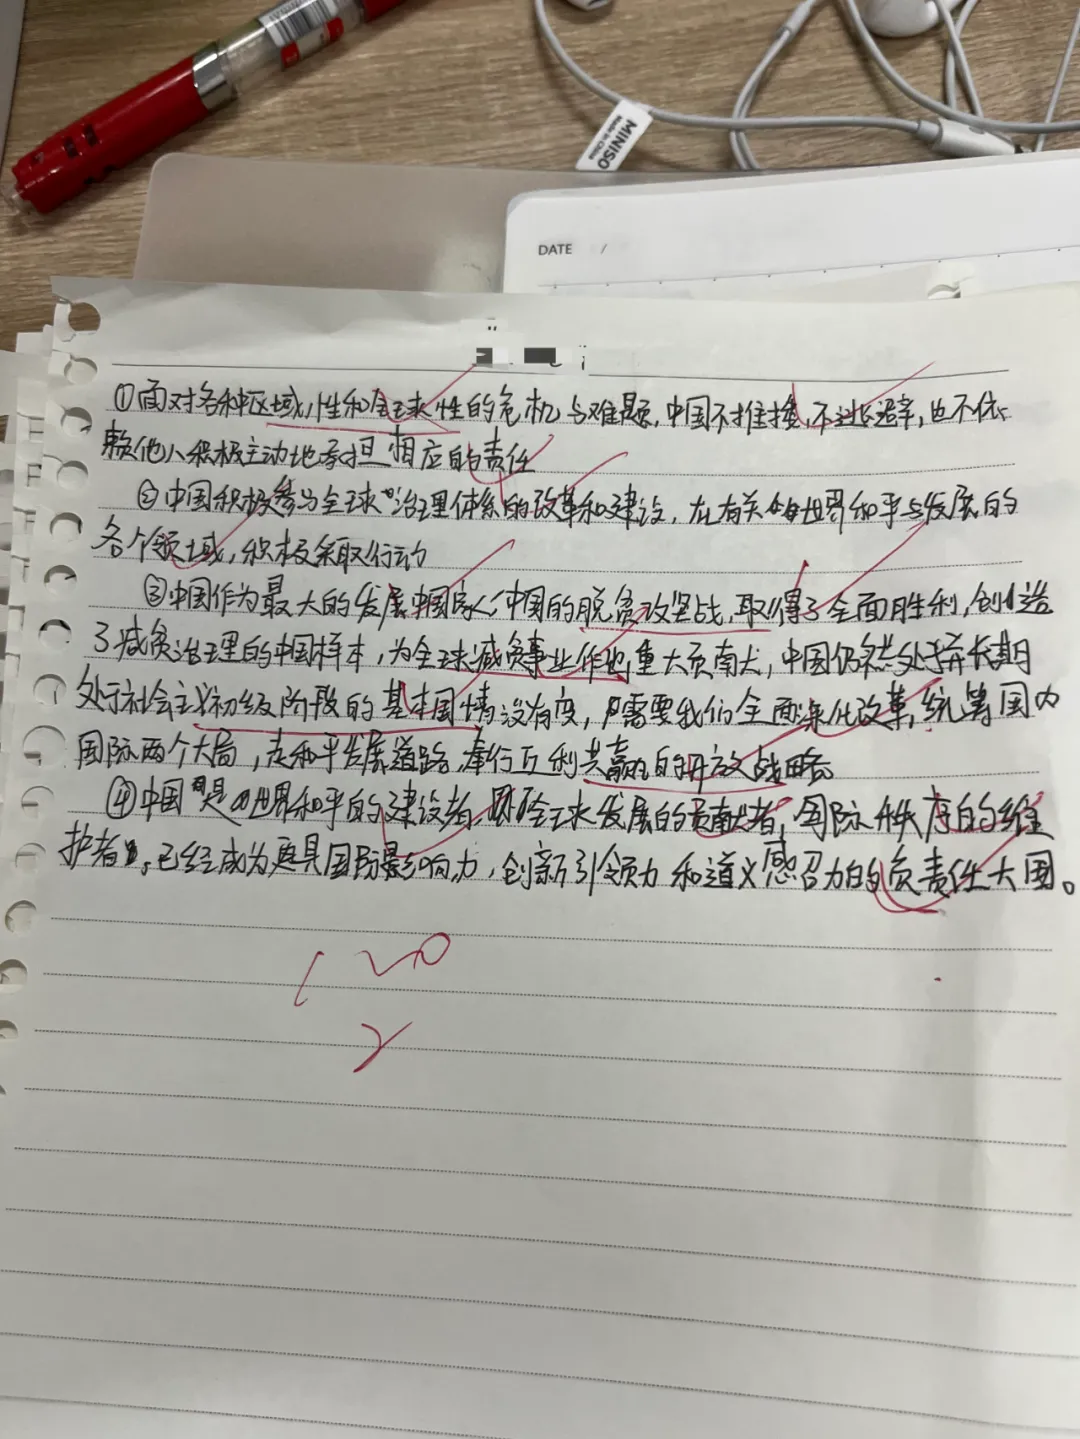 MINISO
Made in China
DATE /
①面对各种区域性和全球性的危机与难题,中国不推诿,不逃避,也不依
赖他人积极主动地承担相应的责任
②中国积极参与全球治理体系的改革和建设,在有关世界和平与发展的
各个领域,积极采取行动
③中国作为最大的发展中国家,中国的脱贫攻坚战,取得了全面胜利,创造
了减贫治理的中国样本,为全球减贫事业作出重大贡献,中国仍然处于并长期
处于社会主义初级阶段的基本国情没有变,需要我们全面深化改革,统筹国内
国际两个大局,走和平发展道路,奉行互利共赢的开放战略
④中国是世界和平的建设者,全球发展的贡献者,国际秩序的维
护者,已经成为更具国际影响力,创新引领力和道义感召力的负责任大国。